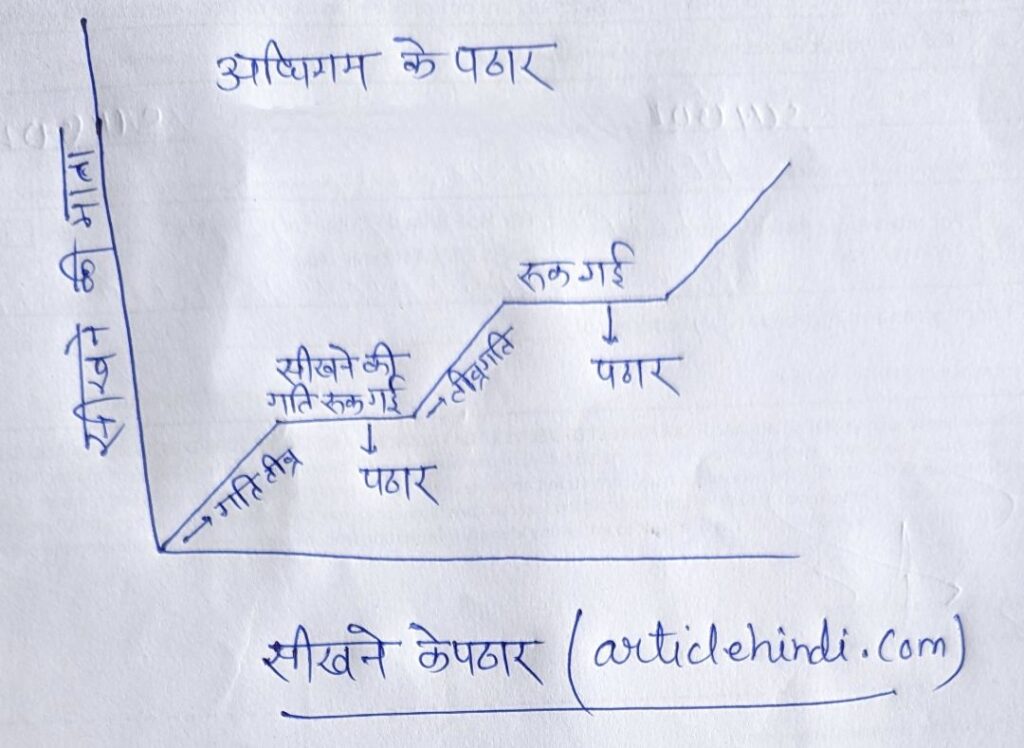 अधिगम के पठार
सीखने की मात्रा
रूक गई
पठार
तीव्रगति
सीखने की
गति रूक गई
पठार
गति तीव्र
सीखने के पठार (articlehindi.com)